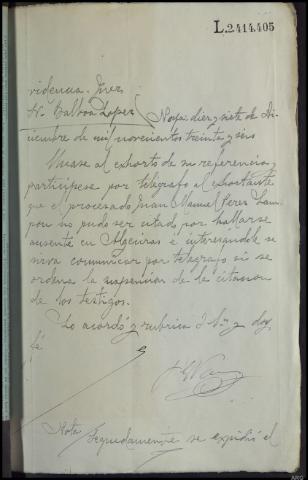 L.2414.405
videncia. Juez
Sr. Balboa Lopez Noya diez y siete de Di-
ciembre de mil novecientos treinta y seis
Unase al exhorto de su referencia y
participese por telegrafo al exhortante
que el procesado Juan Manuel Perez
pon no pudo ser citado por hallarse
ausente en Algeciras e interesandole se
sirva comunicar por telegrafo si se
ordena la suspension de la citacion
de los testigos.
Lo acordó y rubrica S Sª y doy
fé
Nota Seguidamente se expidió el